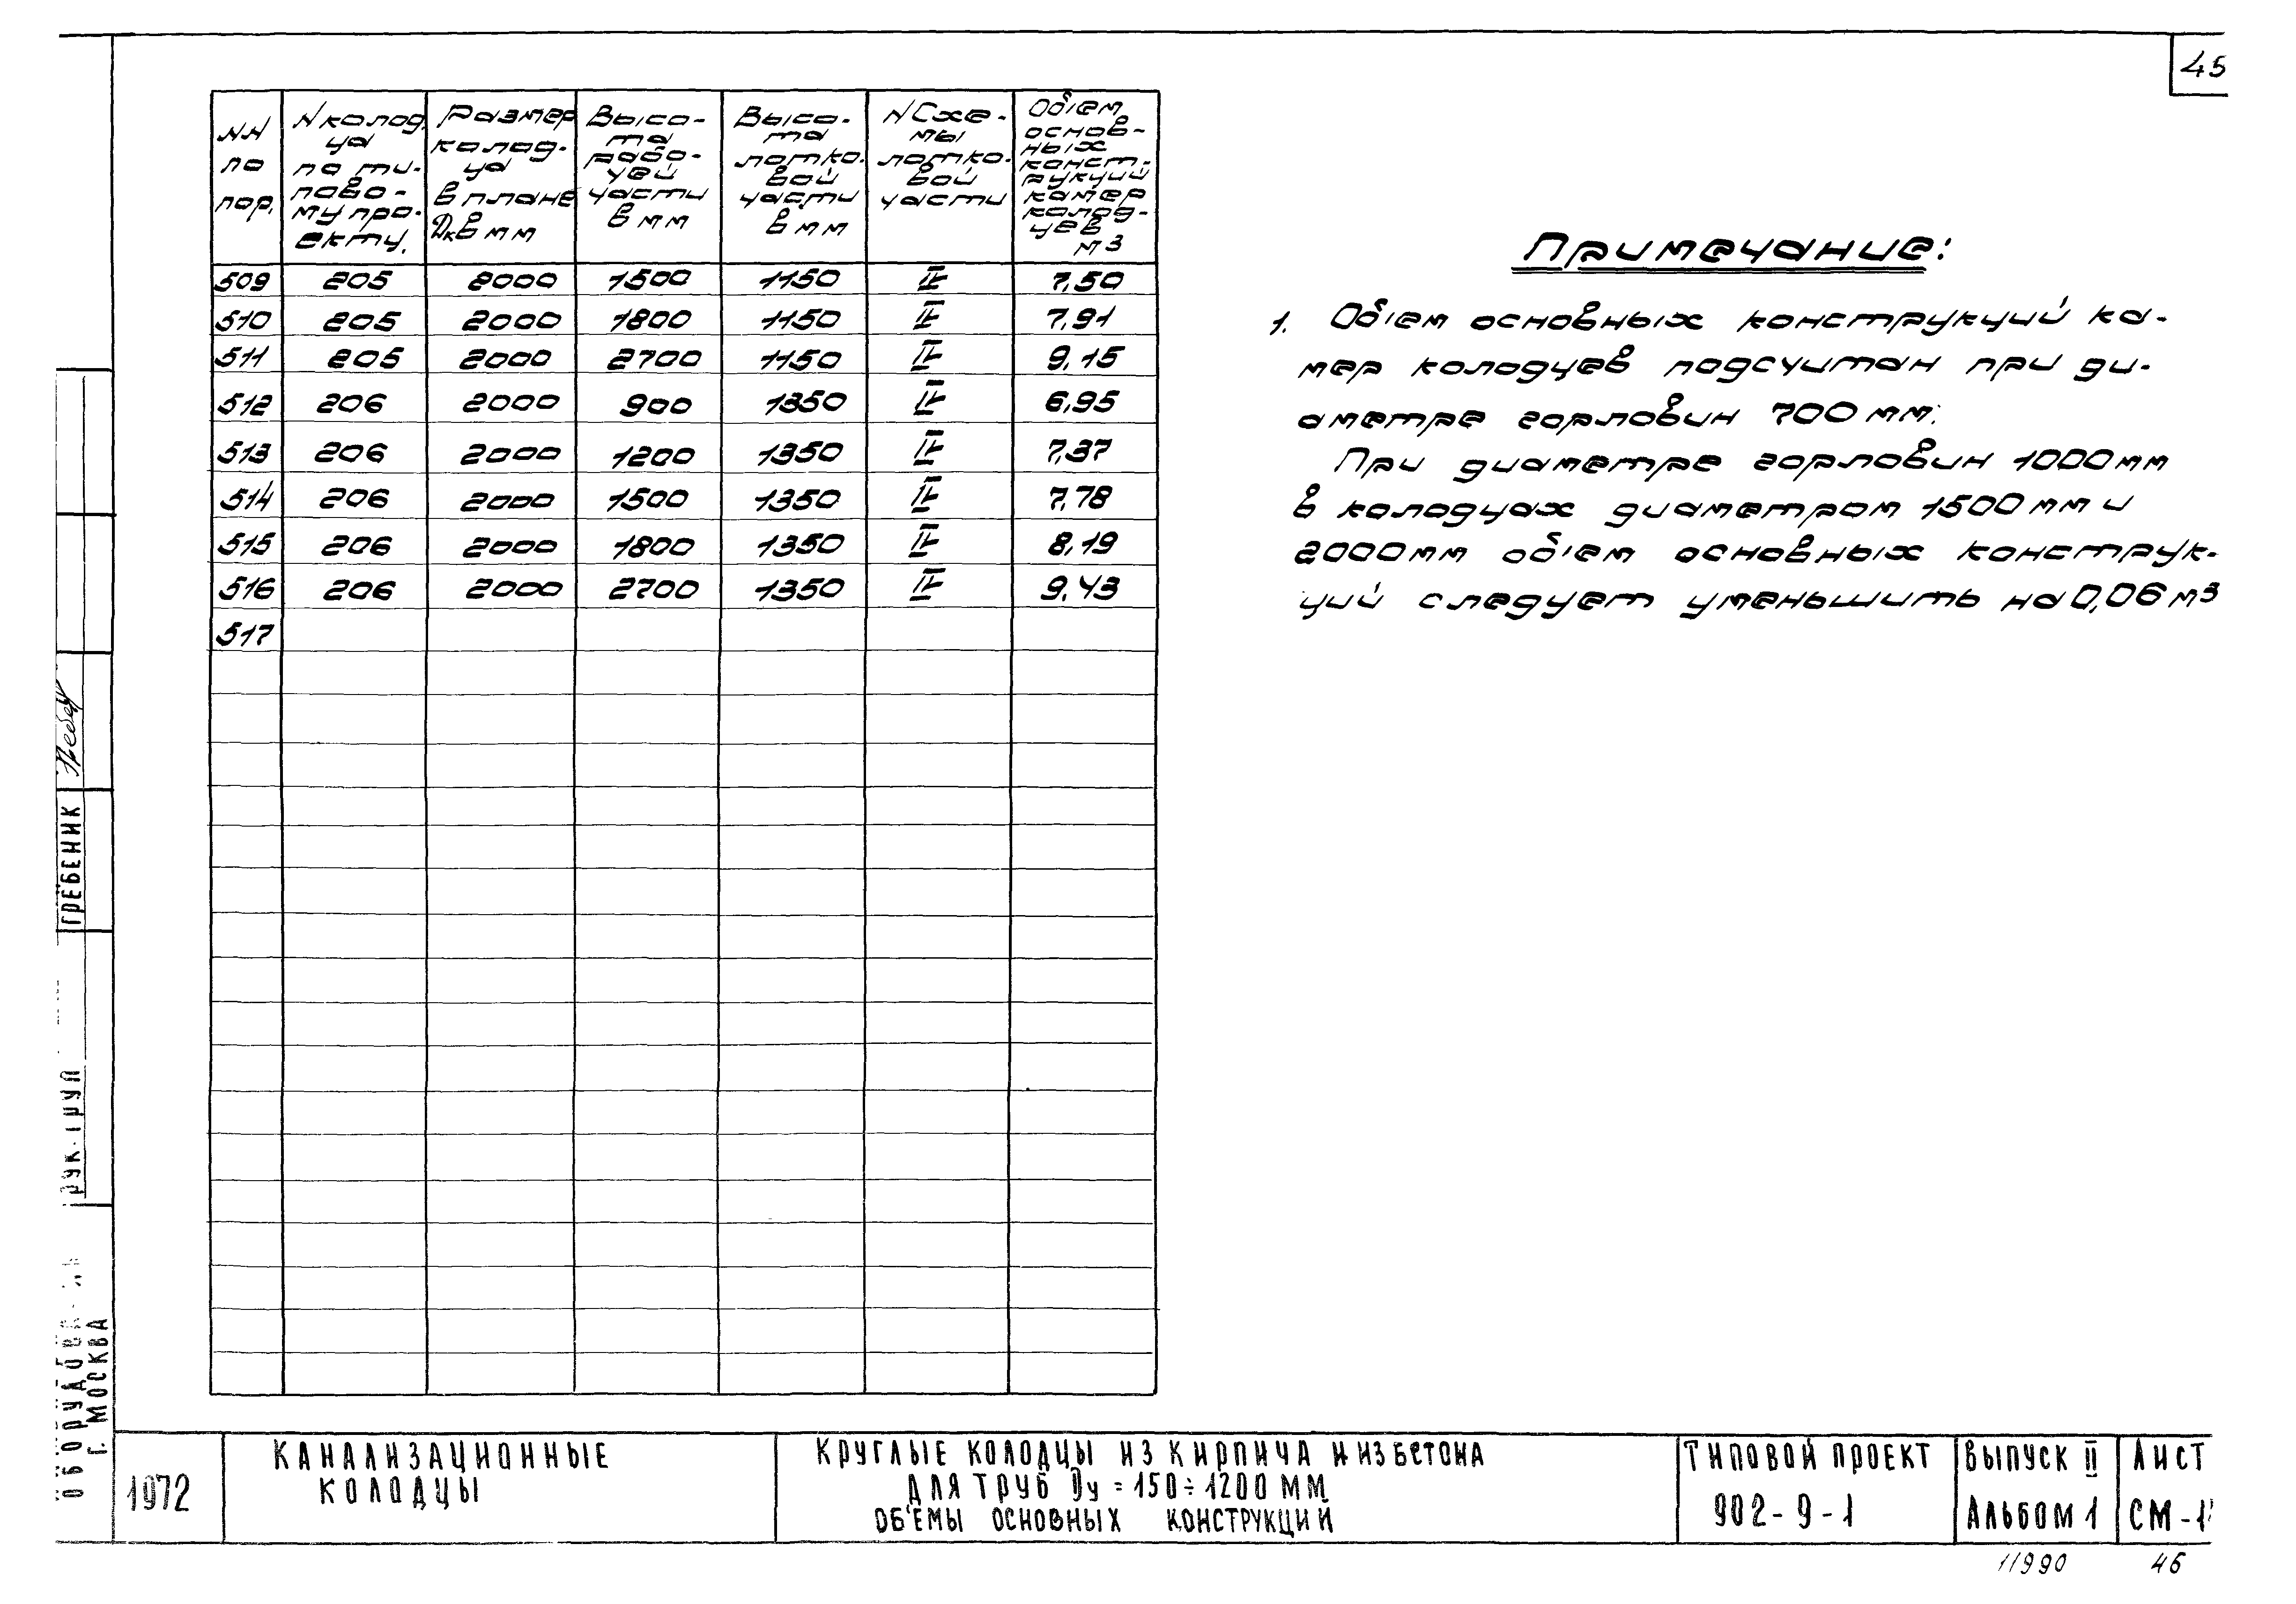 45
NN по пор.
N колод. ца по ти- пово- му про- екту.
Размер колод- ца в плане Дк в мм
Высо- та рабо- чей части в мм
Высо- та лотко- вой части в мм
N Схе- мы лотко- вой части
Объем основ- ных конст- рукций камер колод- цев м3
509 205 2000 1500 1150 II 7,50
510 205 2000 1800 1150 II 7,91
511 205 2000 2700 1150 II 9,15
512 206 2000 900 1350 II 6,95
513 206 2000 1200 1350 II 7,37
514 206 2000 1500 1350 II 7,78
515 206 2000 1800 1350 II 8,19
516 206 2000 2700 1350 II 9,43
517
Примечание:
1. Объем основных конструкций ка-
мер колодцев подсчитан при ди-
аметре горловин 700 мм.
При диаметре горловин 1000 мм
в колодцах диаметром 1500 мм и
2000 мм объем основных конструк-
ций следует уменьшить на 0,06 м3
ГРЕБЕНИК
РУК. ГРУП
Г. МОСКВА
1972
КАНАЛИЗАЦИОННЫЕ
КОЛОДЦЫ
КРУГЛЫЕ КОЛОДЦЫ ИЗ КИРПИЧА И ИЗ БЕТОНА
ДЛЯ ТРУБ Dу = 150 ÷ 1200 ММ
ОБ'ЕМЫ ОСНОВНЫХ КОНСТРУКЦИЙ
ТИПОВОЙ ПРОЕКТ
902-9-1
ВЫПУСК II
АЛЬБОМ 1
ЛИСТ
СМ-1
11990
46